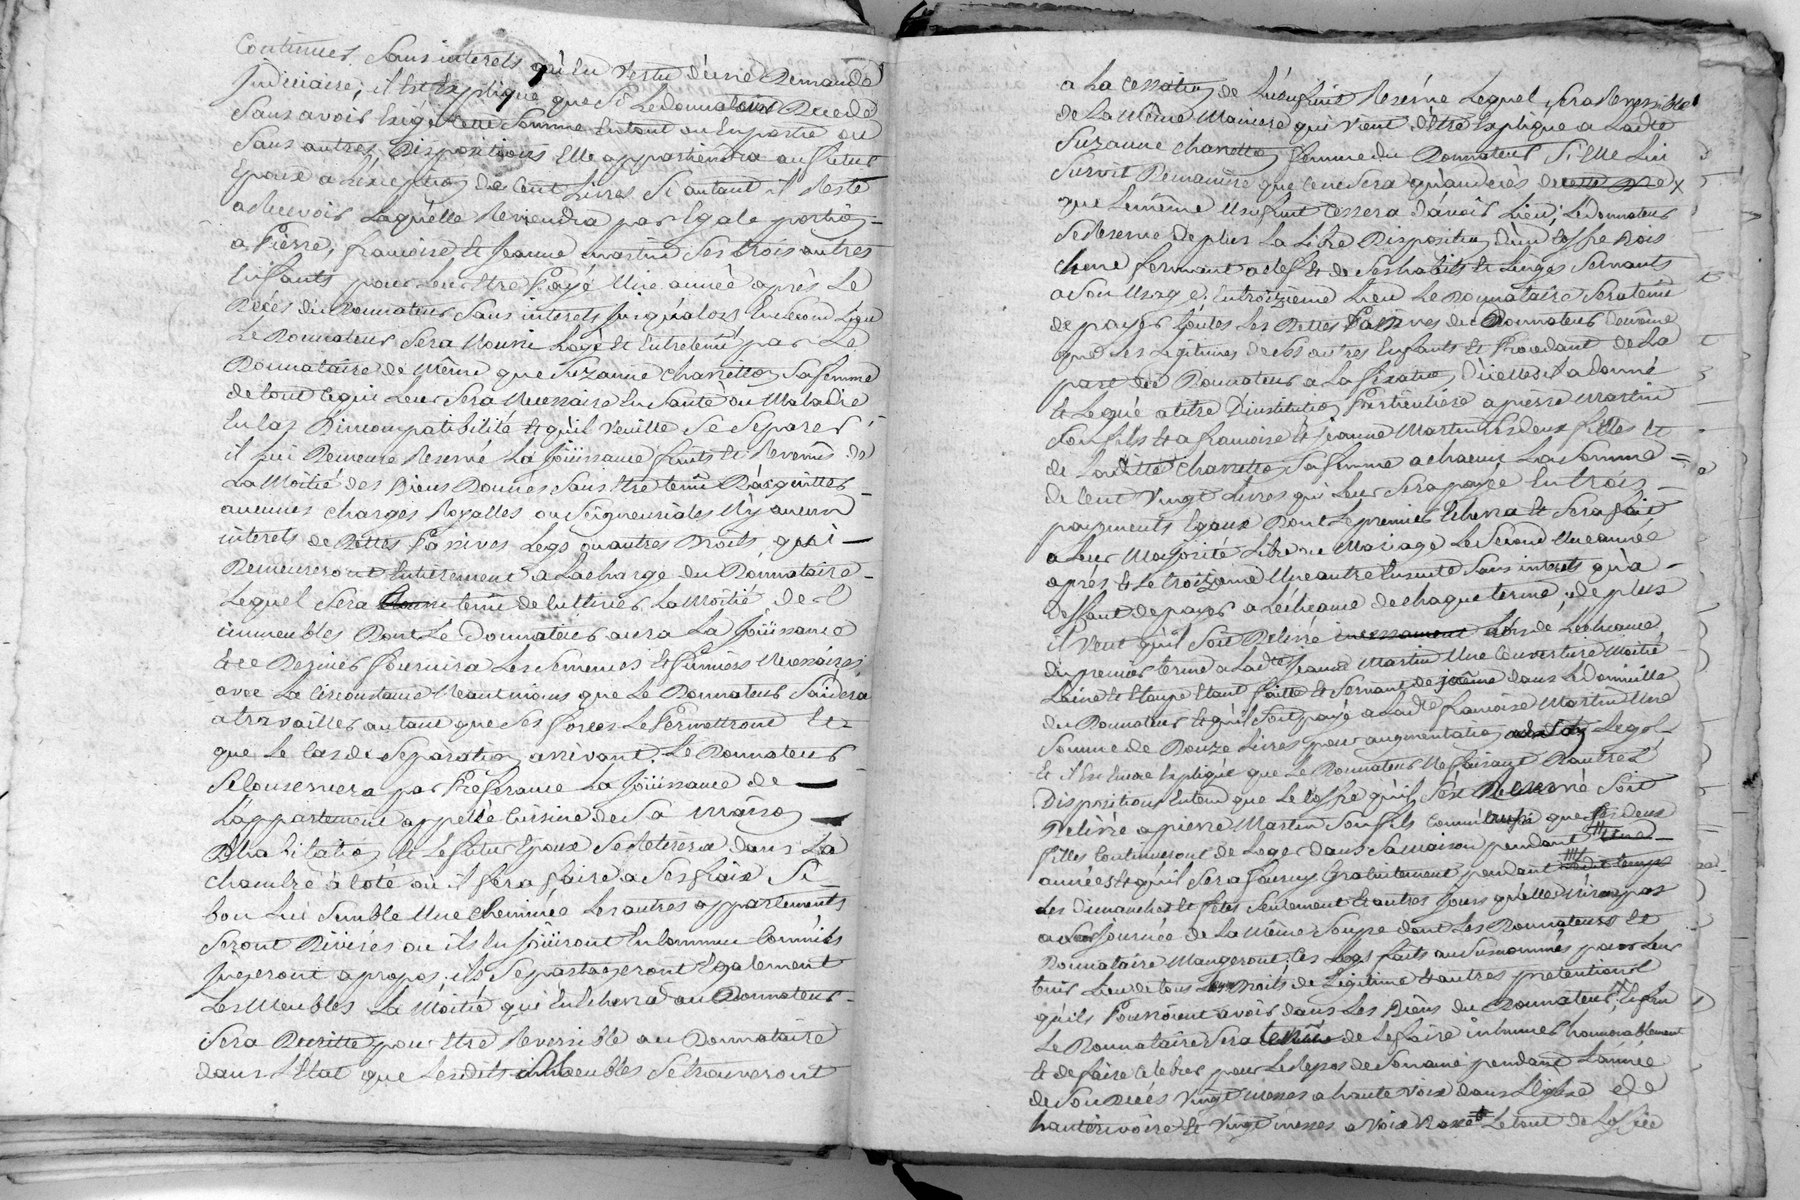 Continues. Sans interets qu'en vertu d'une Demande
Judiciaire, il Est Expliqué que Si Le donnateur Decede
Sans avoir Exigé cette Somme En tout ou En partie ou
Sans autres Dispositions Elle appartiendra au futur
Epoux a L'exception de Cent Livres Si autant il Reste
a Recevoir Laquelle Reviendra par Egale portion
a Pierre, françoise Et Jeanne martin Ses trois autres
Enffants pour Leur Etre Payé Une année après Le
Décés du Donnateur Sans interets jusqu'alors En Second Lieu
Le Donnateur Sera Nourri Logé Et Entretenû par Le
Donnataire de même que Suzanne charretton Sa femme
de tout Ce qui Leur Sera Necessaire En Santé ou Maladie
En Cas D'incompatibilité Et qu'il veuille Se Separer
il Lui Demeure Reservé La Joüissance fruits Et Revenus de
La Moitié des Biens Donnés Sans Etre tenû D'acquitter
aucunes Charges Royalles ou Seigneuriales N'y aucuns
interets de Dettes Passives Legs ou autres Droits, qui
Demeureront Entierement a La charge du Donnataire
Lequel Sera tenû de Cultiver La Moitié des
immeubles Dont Le Donnateur aura La Joüissance
Et ce Dernier fournira Les Semences Et fumiers Necessaires
avec La Circonstance Neantmoins que Le Donnateur S'aidera
a travailler autant que Ses forces Le Permettront Et
que Le Cas de Separation arrivant, Le Donnateur
Se Conservera par Preferance La Joüissance de
L'appartement appellé Cuisine de Sa maison
D'habitation Et Le futur Epoux Se Retirera dans La
Chambre a Coté où il fera faire a Ses fraix Si
bon Lui Semble Une Cheminée Les autres appartements
Seront Divisés ou ils En Joüiront En Commun Comm'ils
Jugeront a propos, ils Se partageront Egalement
Les Meubles La Moitié qui En Echerra au Donnateur
Sera Decritte pour Etre Reversible au Donnataire
dans L'Etat que Lesdits Meubles Se trouveront
a La Cessation de L'usufruit Reservé Lequel Sera Reversible
de La Même Maniere qui vient d'Etre Expliqué a Ladte
Suzanne Charretton femme du Donnateur Si Elle Lui
Survit De maniere que Ce ne Sera qu'au décès de cette
que Le même Usufruit Cessera d'avoir Lieu, Le Donnateur
Se Reserve de plus La Libre Disposition d'un Coffre Bois
Chene fermant a clef Et de Ses habits Et Linges Servants
a Son Usage, En troizieme Lieu Le Donnataire Sera tenû
de payer toutes Les Dettes Passives du Donnateur de même
que Les Legitimes de Ses autres Enfants Et Procedant de La
part du Donnateur a La fixation D'icelles il a donné
Et Legué a titre D'institution Particuliere a pierre Martin
Son fils Et a françoise Et Jeanne Martin Ses deux filles Et
de Laditte Charretton Sa femme a chacun La Somme
de Cent Vingt Livres qui Leur Sera payée En trois
payements Egaux Dont Le premier Echerra Et Sera fait
a Leur Majorité Libre ou Mariage Le Second Une année
après Et Le troizieme Une autre Ensuite Sans interets qu'a
deffaut de payer a L'écheance de chaque terme, de plus
il Veut qu'il Soit Delivré incessament Lors de L'echeance
du premier terme a Ladte Jeanne Martin Une Couverture Moitié
Laine Et Etoupe Etant faitte Et Servant de même dans Le domicille
du Donnateur Et qu'il Soit payé a Ladte françoise Martin Une
Somme de Douze Livres pour augmentation Legs
Et il Est Encore Expliqué que Le Donnateur Ne faisant D'autres
Dispositions Entend que Le Coffre qu'il S'est Reservé Soit
Delivré a pierre Martin Son fils Comm'aussi que Ses deux
filles Continueront de Loger dans Sa maison pendant
années Et qu'il Sera fourny Gratuitement pendant Ledit temps
Les Dimanches Et fetes Seulement Et autres Jours qu'elles N'iront pas
a Journée de La Même Soupe dont Les Donnateurs Et
Donnataire Mangeront, Les Legs faits aux Susnommés pour Leur
tenir Lieu de tous Droits de Legitime Et autres pretentions
qu'ils Pourroient avoir dans Les Biens du Donnateur, Enfin
Le Donnataire Sera tenû de Le faire inhumer honnorablement
Et de faire Celebrer pour Le Repos de Son ame pendant L'année
de Son Décés Vingt messes a haute Voix dans L'Eglise de
hauterivoire Et Vingt messes a Voix Basse Le tout de L'office